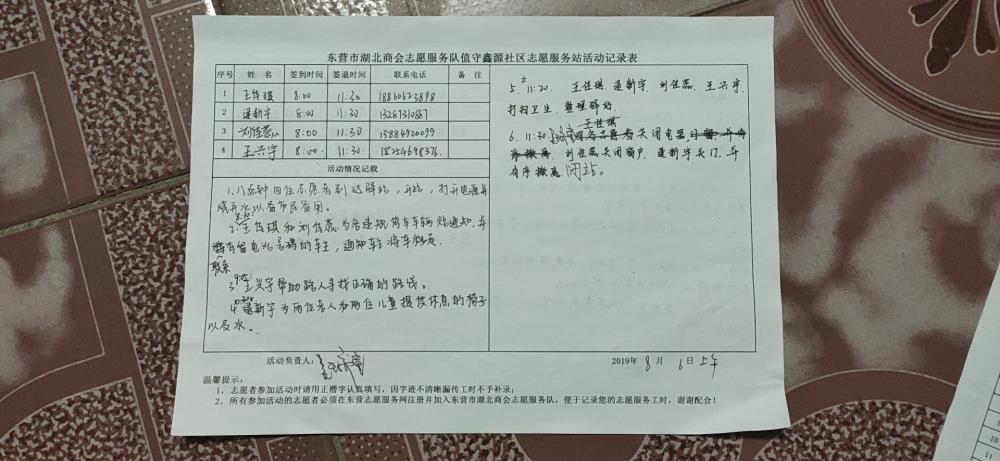 东营市湖北商会志愿服务队值守鑫源社区志愿服务站活动记录表
序号 姓 名 签到时间 签退时间 联系电话 备 注
1 王佳琪 8:00 11:30 18860623898
2 逯新宇 8:00 11:30 13287310887
3 刘佳蕊 8:00 11:30 13884920099
4 王兴宇 8:00 11:30 18254698376
活动情况记载
1.八点钟四位志愿者到达驿站,开站,打开电源并
烧开水以备市民备用。
2.王佳琪和刘佳蕊为各违规停车车辆贴通知,并
联系有留电话号码的车主,通知车主将车挪走.
3.王兴宇帮助路人寻找正确的路线。
4.逯新宇为两位老人和两位儿童提供休息的椅子
以及水。
5. 11:20 王佳琪,逯新宇,刘佳蕊,王兴宇,
打扫卫生,整理驿站.
王佳琪
6. 11:30 关闭电
刘佳蕊关闭窗户,逯新宇关门,并
有序撤离 闭站。
活动负责人:
2019年 8 月 6日 上午
温馨提示:
1,志愿者参加活动时请用正楷字认真填写,因字迹不清晰漏传工时不予补录;
2,所有参加活动的志愿者必须在东营志愿服务网注册并加入东营市湖北商会志愿服务队,便于记录您的志愿服务工时,谢谢配合!
9
10
11